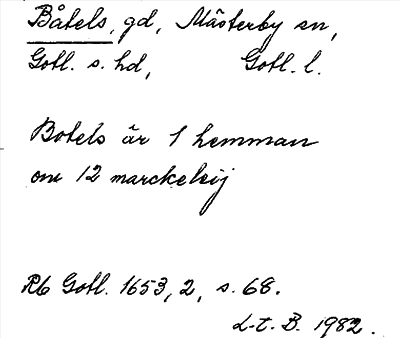 Båtels, gd, Mästerby sn,
Gotl. s. hd, Gotl. l.
Botels är 1 hemman
om 12 marckeleij
Rb Gotl. 1653, 2, s. 68.
L-t. B. 1982.